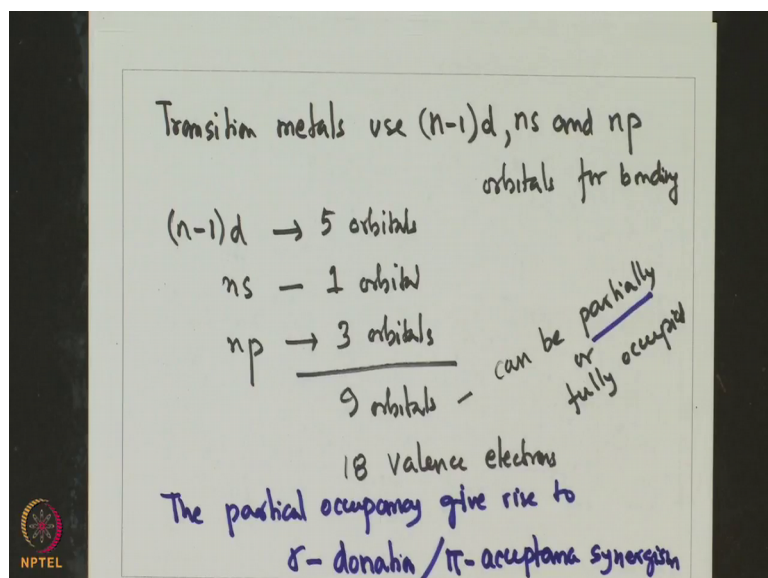 Transition metals use (n-1)d, ns and np
orbitals for bonding
(n-1)d → 5 orbitals
ns – 1 orbital
np → 3 orbitals
9 orbitals – can be partially
or
fully occupied
18 valence electrons
The partical occupancy give rise to
σ- donatin / π- acuptama synergism
NPTEL